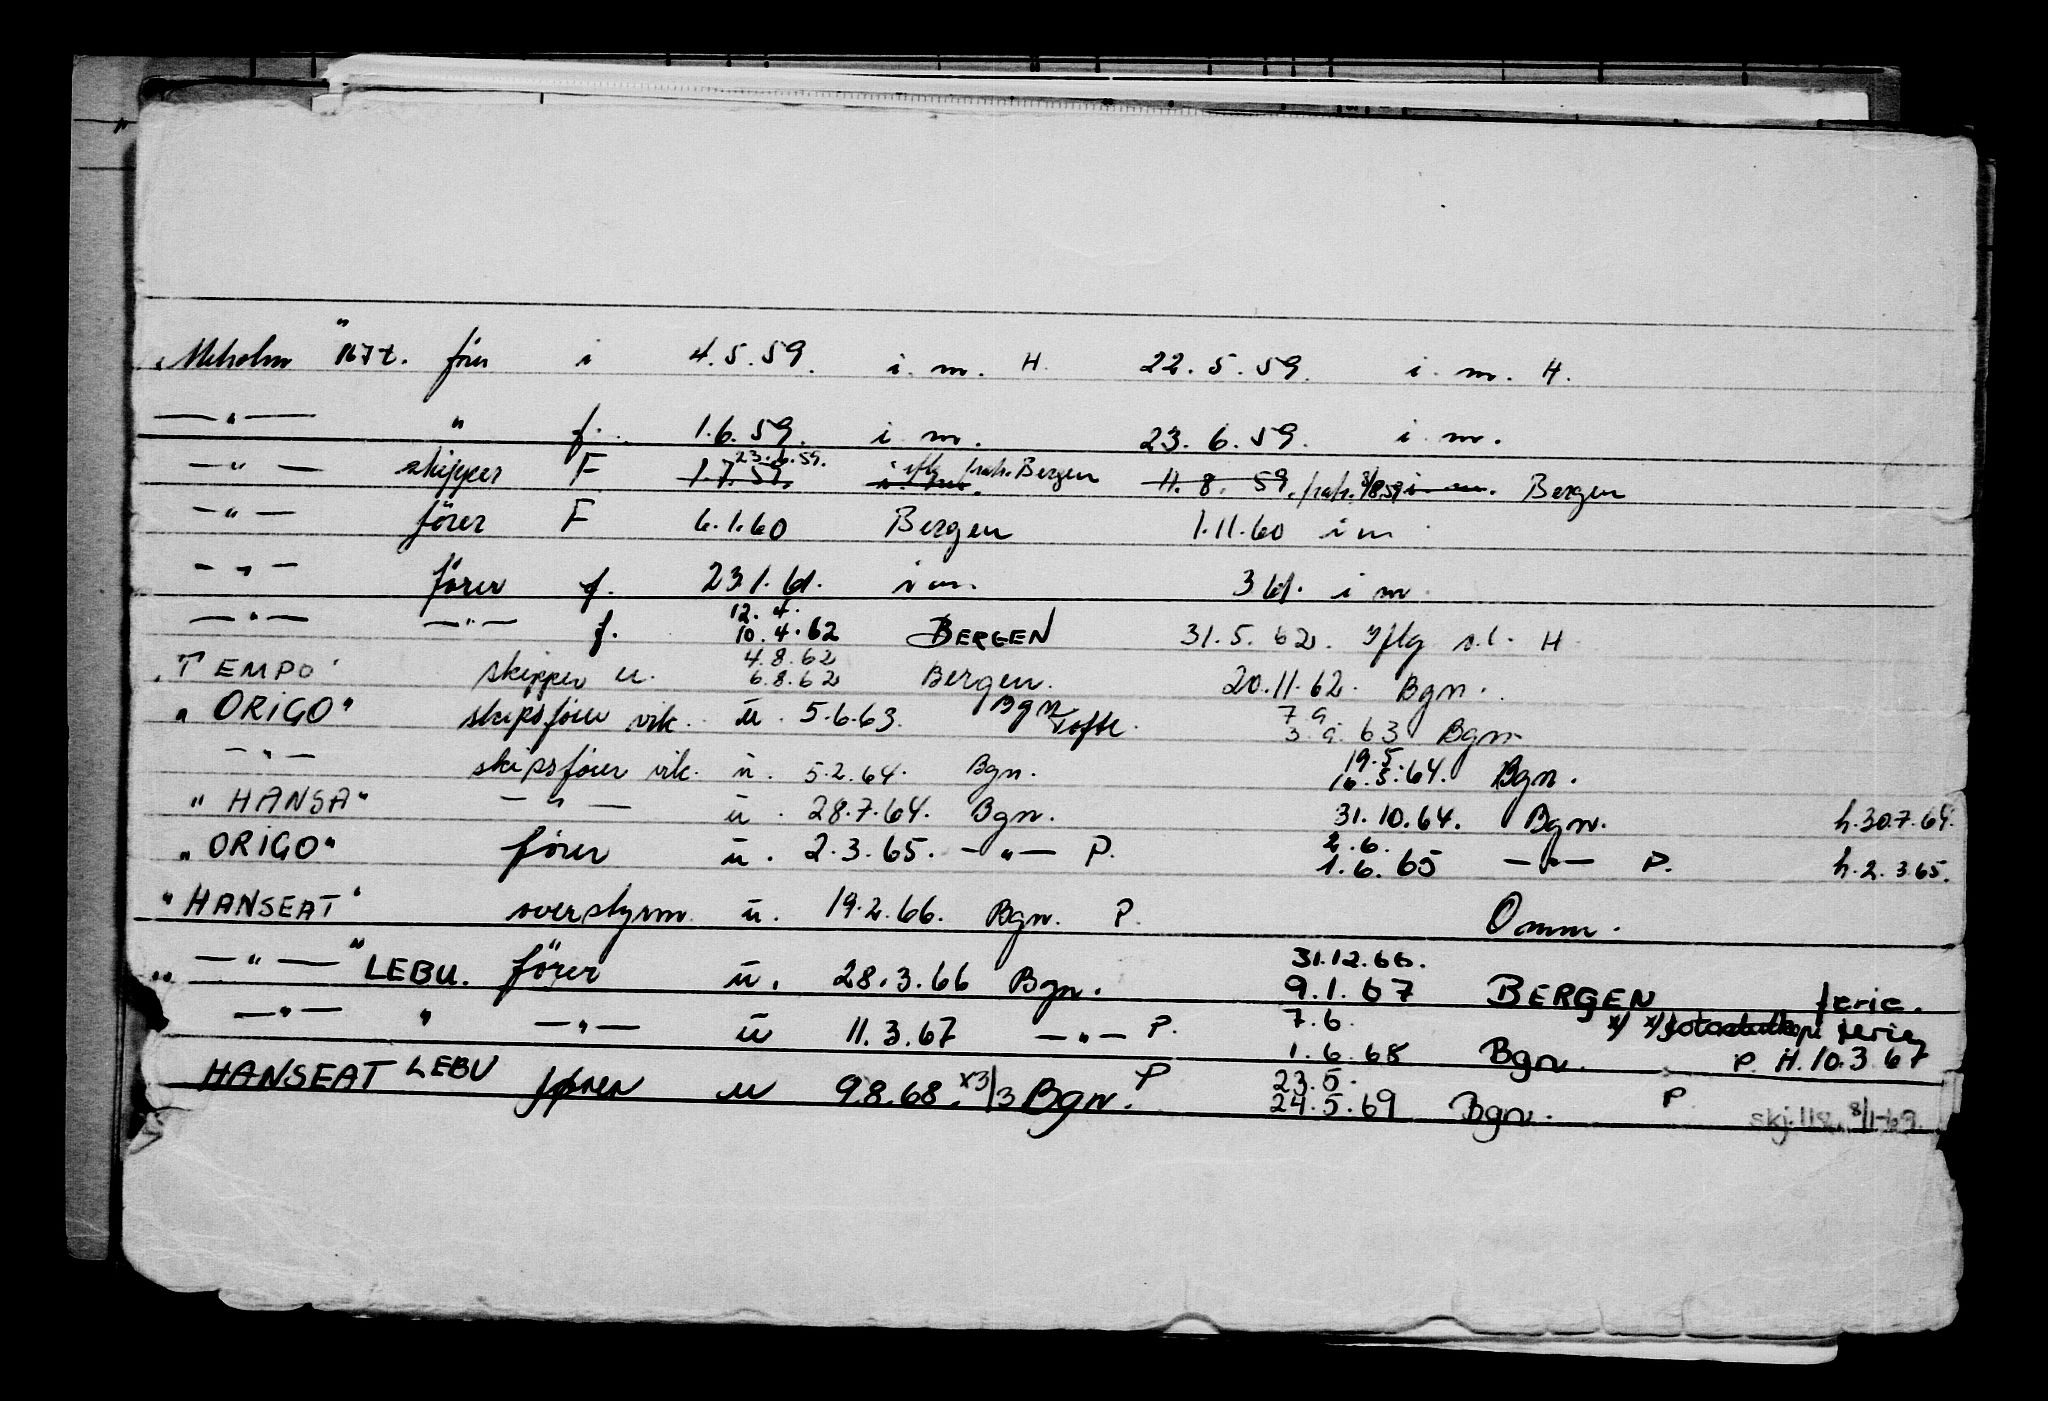 "Meholm" 167 t. förer i 4.5.59. i. m. H. 22.5.59. i. m. H.
—"— " f. 1.6.59. i. m. 23.6.59. i. m.
23.6.59. iflg patr. Bergen
—"— skipper F 1.7.59. i. m. 11.8.59. patr. 8/8 59 i m. Bergen
—"— förer F 6.1.60 Bergen 1.11.60 i m
—"— förer f. 23.1.61. i m. 3 61. i m
12.4.
—"— —"— f. 10.4.62 BERGEN 31.5.62. Iflg s.l. H
4.8.62
"TEMPO" skipper u. 6.8.62 Bergen. 20.11.62. Bgn.
7.9
"ORIGO" skipsförer vik. u. 5.6.63. Bgn Tofte. 3.9.63 Bgn.
19.5.
—"— skipsförer vik. u. 5.2.64. Bgn. 16.5.64. Bgn.
"HANSA" —"— u. 28.7.64. Bgn. 31.10.64. Bgn. h.30.7.64.
2.6.
"ORIGO" förer u. 2.3.65. —"— P. 1.6.65 —"— P. h.2.3.65.
"HANSEAT" overstyrm. u. 19.2.66. Bgn. P. Omm.
31.12.66.
—"— "LEBU. förer u. 28.3.66 Bgn. 9.1.67 BERGEN ferie.
7.6. x/ x/fotostatkopi ferie
—"— " —"— u 11.3.67 —"— P. 1.6.68 Bgn. P. H.10.3 67
23.5.
HANSEAT LEBU fører u 9.8.68. x3/3 Bgn. P 24.5.69 Bgn. P skj.118. 8/1-69.